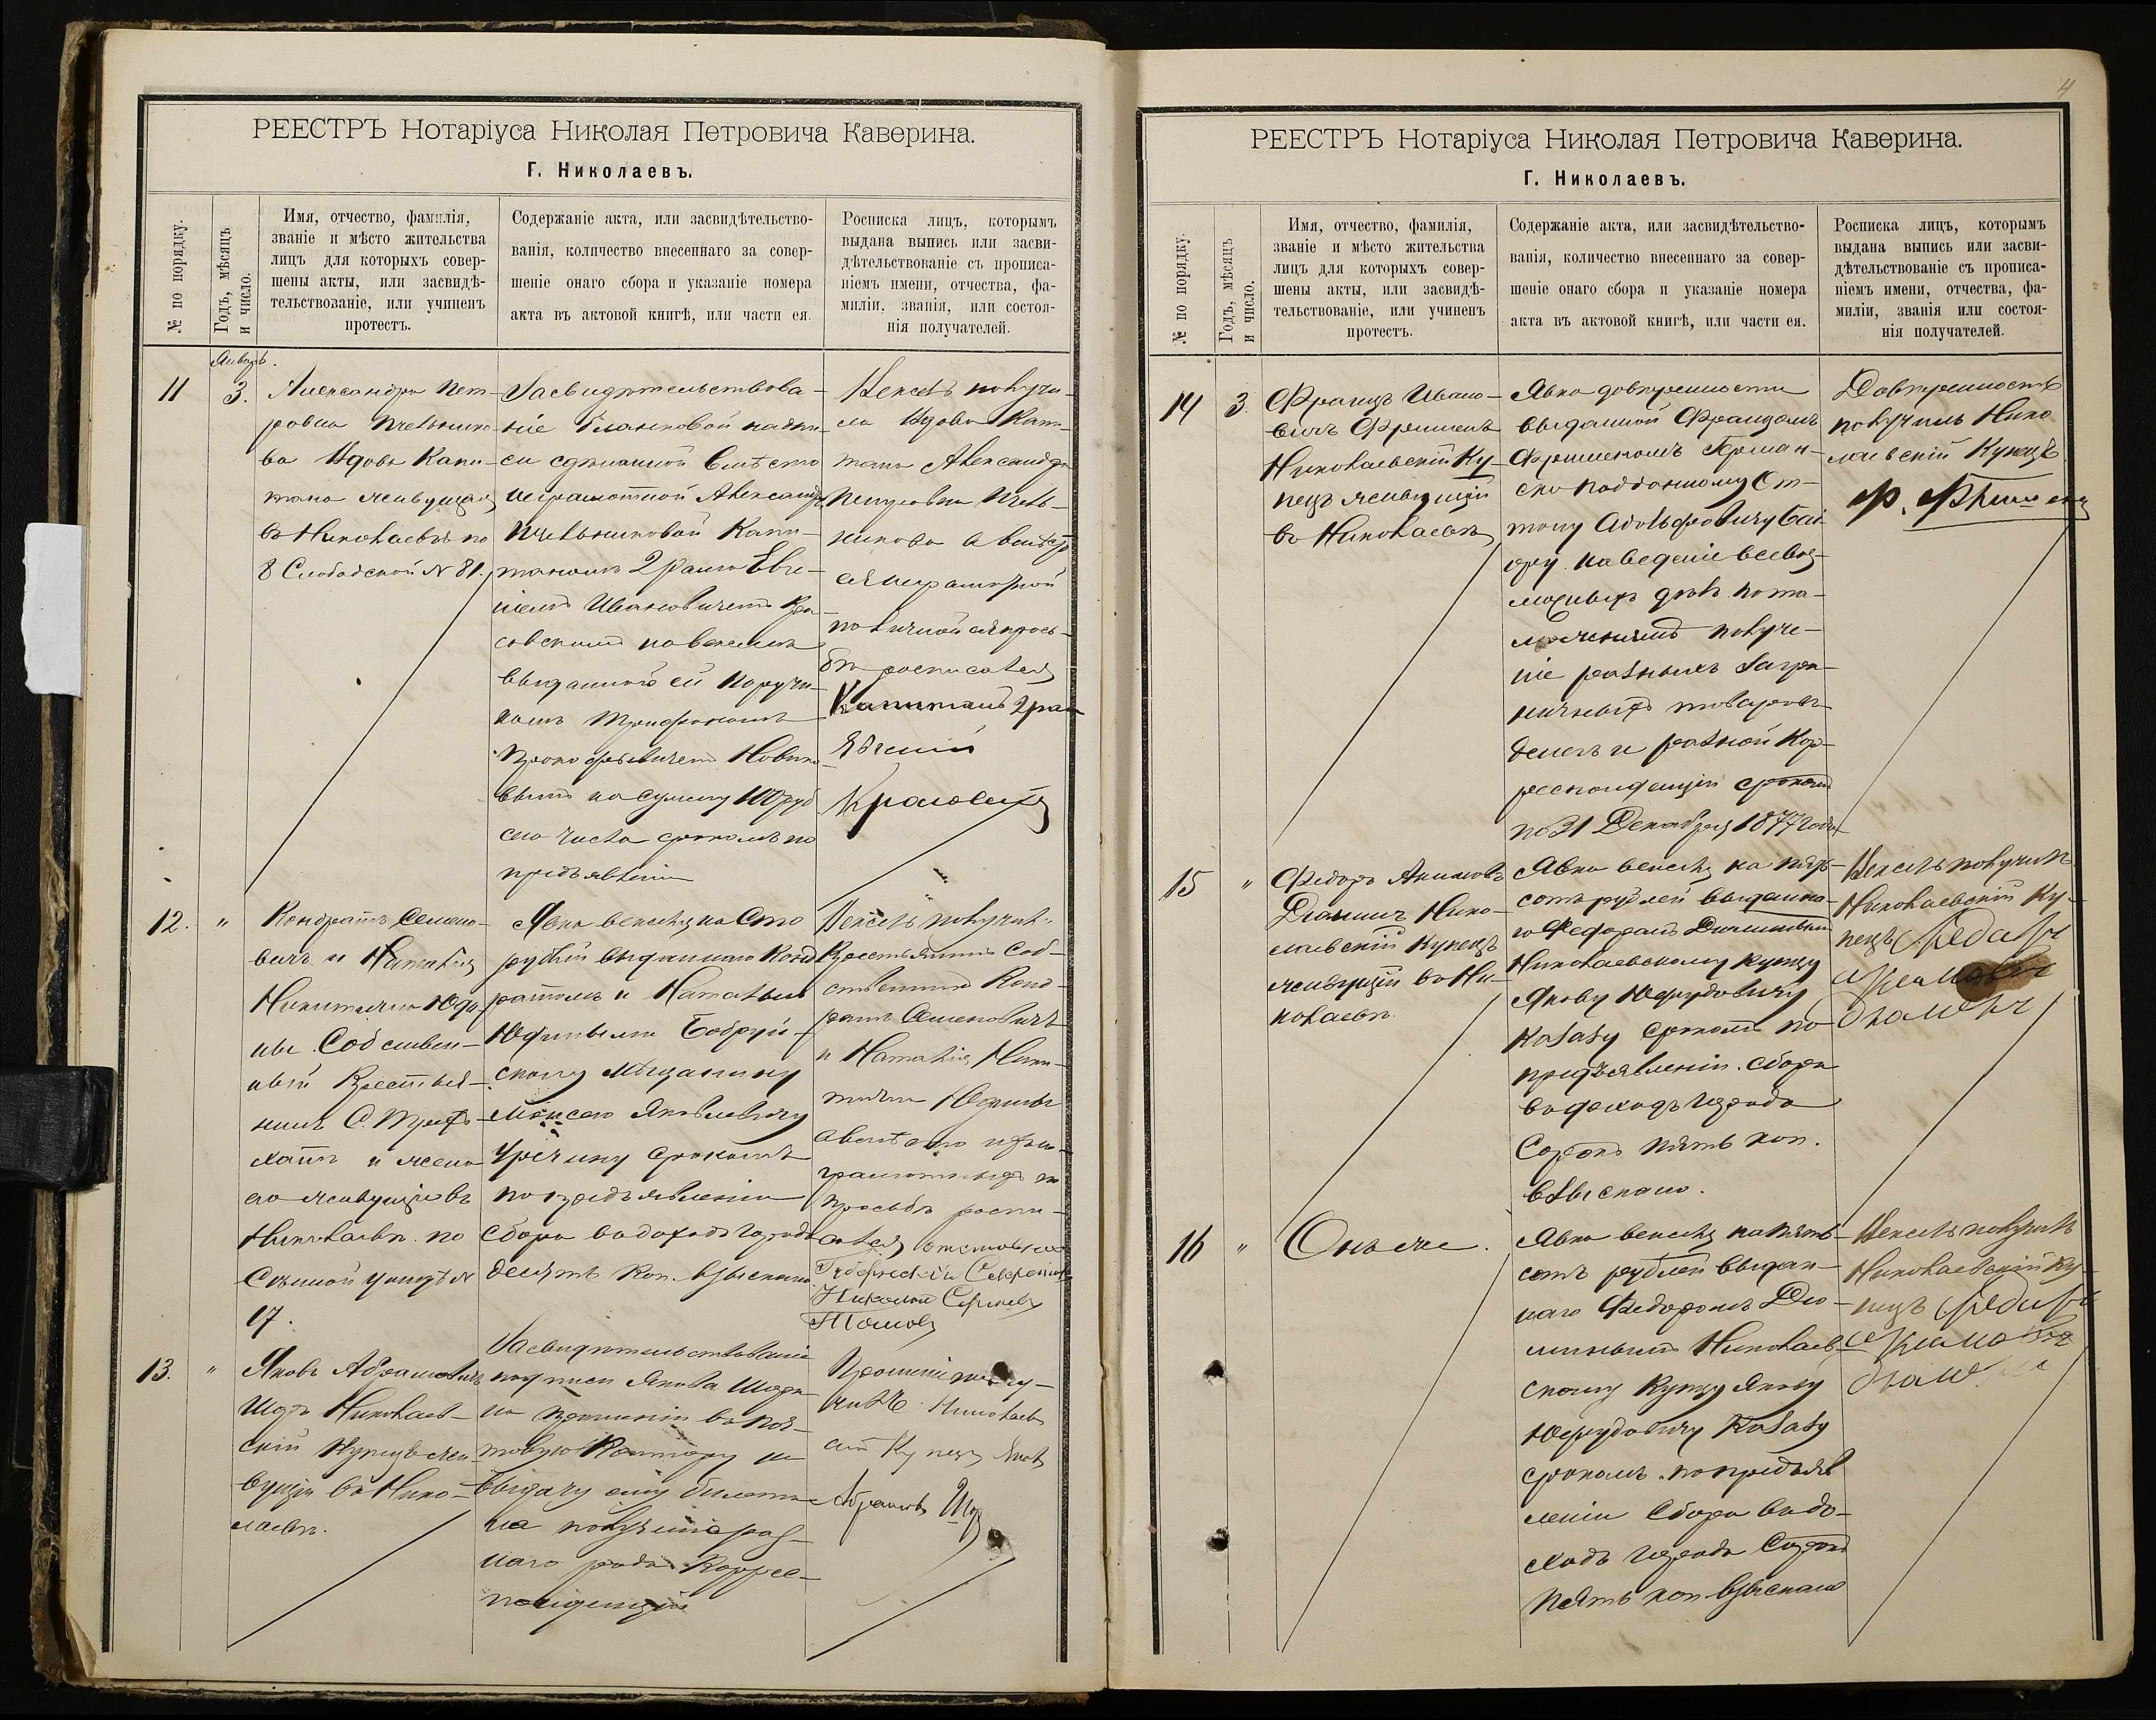 РЕЕСТРЪ Нотаріуса Николая Петровича Каверина.
Г. Николаевъ.
№ по порядку.
Годъ, мѣсяцъ
и число.
Имя, отчество, фамилія,
званіе и мѣсто жительства
лицъ для которыхъ совер-
шены акты, или засвидѣ-
тельствованіе, или учиненъ
протестъ.
Содержаніе акта, или засвидѣтельство-
ванія, количество внесеннаго за совер-
шеніе онаго сбора и указаніе номера
акта въ актовой книгѣ, или части ея.
Росписка лицъ, которымъ
выдана выпись или засви-
дѣтельствованіе съ прописа-
ніемъ имени, отчества, фа-
миліи, званія, или состоя-
нія получателей.
Январь.
11
3.
Александра Пет-
ровна Пчельнико-
ва Вдова Капи-
тана живущая
въ Николаевѣ по
8 Слободской № 81.
Засвидѣтельствова-
ніе бланковой надпи-
си сдѣланной вмѣсто
неграмотной Александры
Пчельниковой Капи-
таномъ 2 ранга Евге-
ніемъ Ивановичемъ Кра-
совскимъ на векселѣ
выданномъ ей Поручи-
комъ Трифономъ
Прокофьевичемъ Новико-
вымъ на сумму 100 руб
сего числа срокомъ по
предъявленіи
Вексель получи-
ла Вдова Капи-
тана Александра
Петровна Пчель-
никова а вмѣсто
ея неграмотной
по личной ея прось-
бѣ росписался
Капитанъ 2 ран
Евгеній
Красовскій
12.
"
Кондратъ Семено-
вичъ и Наталья
Никитична Юди-
ны Собствен-
ный Крестья-
нинъ С. Трифо-
и жена
его живущіе въ
Николаевѣ по
Сѣнной улицѣ №
17.
Явка векселя на Сто
рублей выданнаго Конд
ратомъ и Натальей
Юдиными Бобруй-
скому Мѣщанину
Моисею Яковлевичу
срокомъ
по предъявленіи
Сбора въ доходъ города
десять коп. взыскано
Вексель получилъ
Крестьянинъ Соб-
ственникъ Конд-
ратъ Семеновичъ
и Наталія Ники-
тична Юдины
а вмѣсто ихъ не-
грамотныхъ по
просьбѣ распи-
сался отставной
Губернскій Секретарь
Николай Сергѣевъ
13.
"
Яковъ Абрамовичъ
Шоръ Николаев-
скій Купецъ жи-
вущій въ Нико-
лаевѣ.
Засвидѣтельствованіе
подписи Якова Шора
на прошеніи въ поч-
товую Контору на
выдачу ему билета
на полученіе раз-
наго рода Коррес-
понденціи
Прошеніе полу-
чилъ Николаев
скій Купец Яков
Абрамовъ Шор
4
РЕЕСТРЪ Нотаріуса Николая Петровича Каверина.
Г. Николаевъ.
№ по порядку.
Годъ, мѣсяцъ
и число.
Имя, отчество, фамилія,
званіе и мѣсто жительства
лицъ для которыхъ совер-
шены акты, или засвидѣ-
тельствованіе, или учиненъ
протестъ.
Содержаніе акта, или засвидѣтельство-
ванія, количество внесеннаго за совер-
шеніе онаго сбора и указаніе номера
акта въ актовой книгѣ, или части ея.
Росписка лицъ, которымъ
выдана выпись или засви-
дѣтельствованіе съ прописа-
ніемъ имени, отчества, фа-
миліи, званія или состоя-
нія получателей.
14
3
Францъ Ивано-
вичъ Фришенъ
Николаевскій Ку-
пецъ живущій
въ Николаевѣ
Явка довѣренности
выданной Францомъ
Фришеномъ Герман-
ско подданному От-
тону Адольфовичу Бай
еру на веденіе всевоз-
можныхъ дѣлъ по та-
можнямъ получе-
ніе разныхъ Загра-
ничныхъ товаровъ
денегъ и разной Кор-
респонденціи срокомъ
по 31 Декабря 1877 года
Довѣренность
получилъ Нико
лаевскій Купецъ
Ф. Фришенъ
15
"
Федоръ Акимовъ
Дюминъ Нико-
лаевскій Купецъ
живущій въ Ни-
колаевѣ
Явка векселя на пять-
сотъ рублей выданна-
го Федоромъ Дюминымъ
Николаевскому купцу
Якову Юфудовичу
Казасу срокомъ по
предъявленіи. Сбора
въ доходъ города
Сорокъ пять коп.
взыскано.
Вексель получилъ
Николаевскій Ку-
пецъ Федоръ
Акимовъ
Дюминъ
16
"
Онъ же.
Явка векселя на пять-
сотъ рублей выдан-
наго Федоромъ Дю-
минымъ Николаев-
скому Купцу Якову
Юфудовичу Казасу
срокомъ по предъяв
леніи Сбора въ до-
ходъ города Сорокъ
пять коп взыскано
Вексель получилъ
Николаевскій Ку-
пецъ Федоръ
Акимовъ
Дюминъ